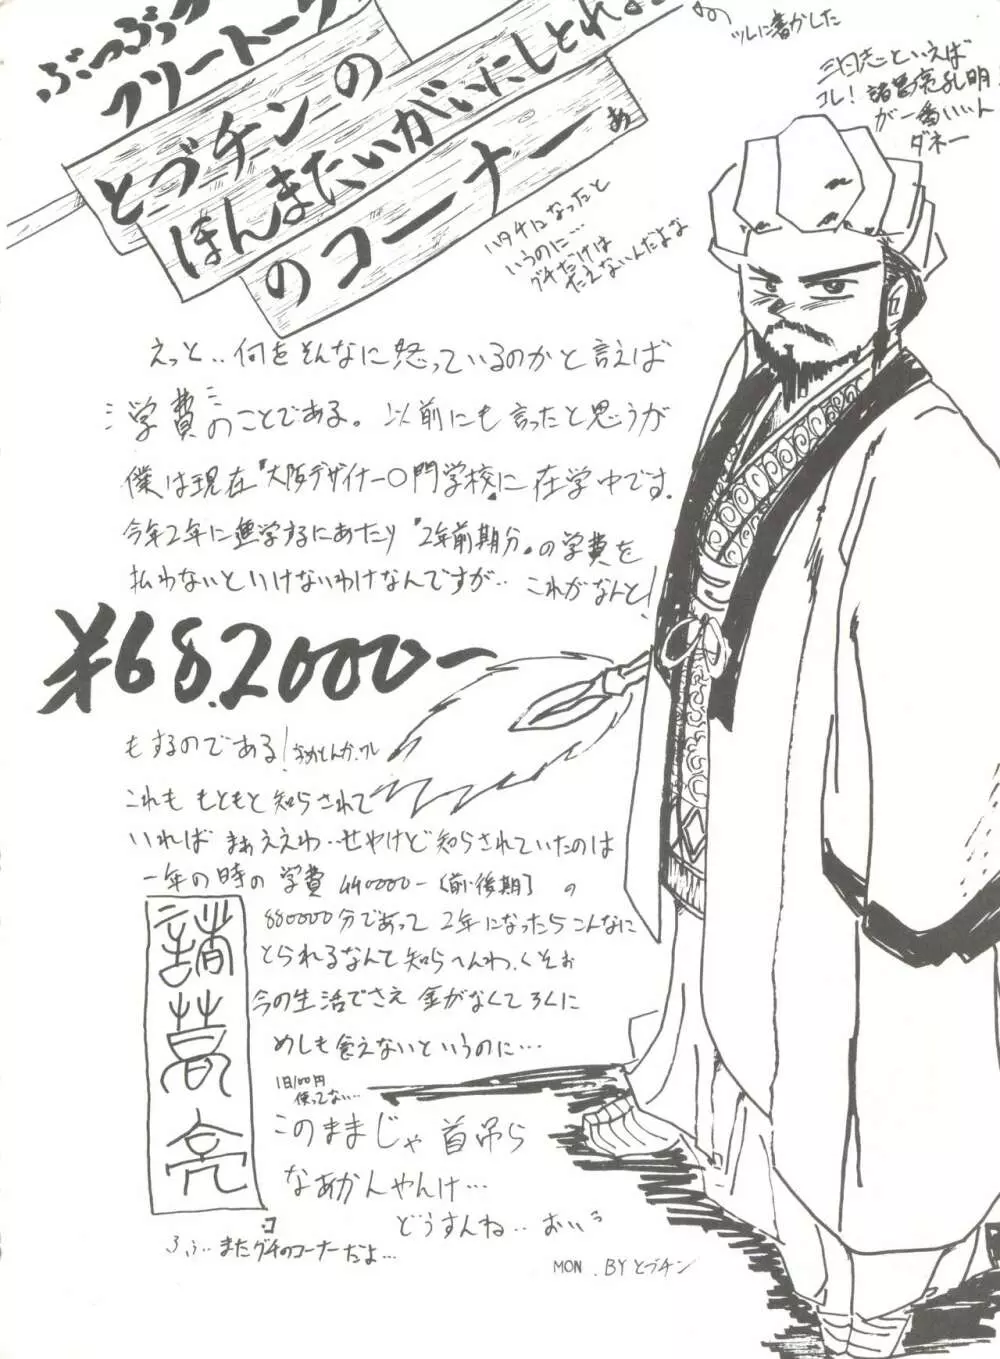 ぶつぶつ
フリートーク
とブチンの
ほんまたいがいにしとれよ
のコーナー
あ
ツレに書かした
三国志といえば
コレ！諸葛亮孔明！
が一番いいん
ダネー
ハタチになったと
いうのに…
グチだけは
たえないんだよな
えっと‥何をそんなに怒っているのかと言えば
学費のことである。以前にも言ったと思うが
僕は現在『大阪デザイナー〇門学校』に在学中です。
今年2年に進学するにあたり『2年前期分』の学費を
払わないといけないわけなんですが‥これがなんと！
¥682000ー
もするのである！
これももともと知らされて
いればまぁええわ‥せやけど知らされていたのは
一年の時の学費440000ー〔前・後期〕の
880000分であって2年になったらこんなに
とられるなんて知らへんわ、くそぉ
今の生活でさえ金がなくてろくに
めしも食えないというのに…
1日100円
使ってない…
このままじゃ首吊ら
なあかんやんけ…
どうすんね‥おい
諸葛亮
ふぅ‥またグチのコーナーだよ…
MON.BYとブチン